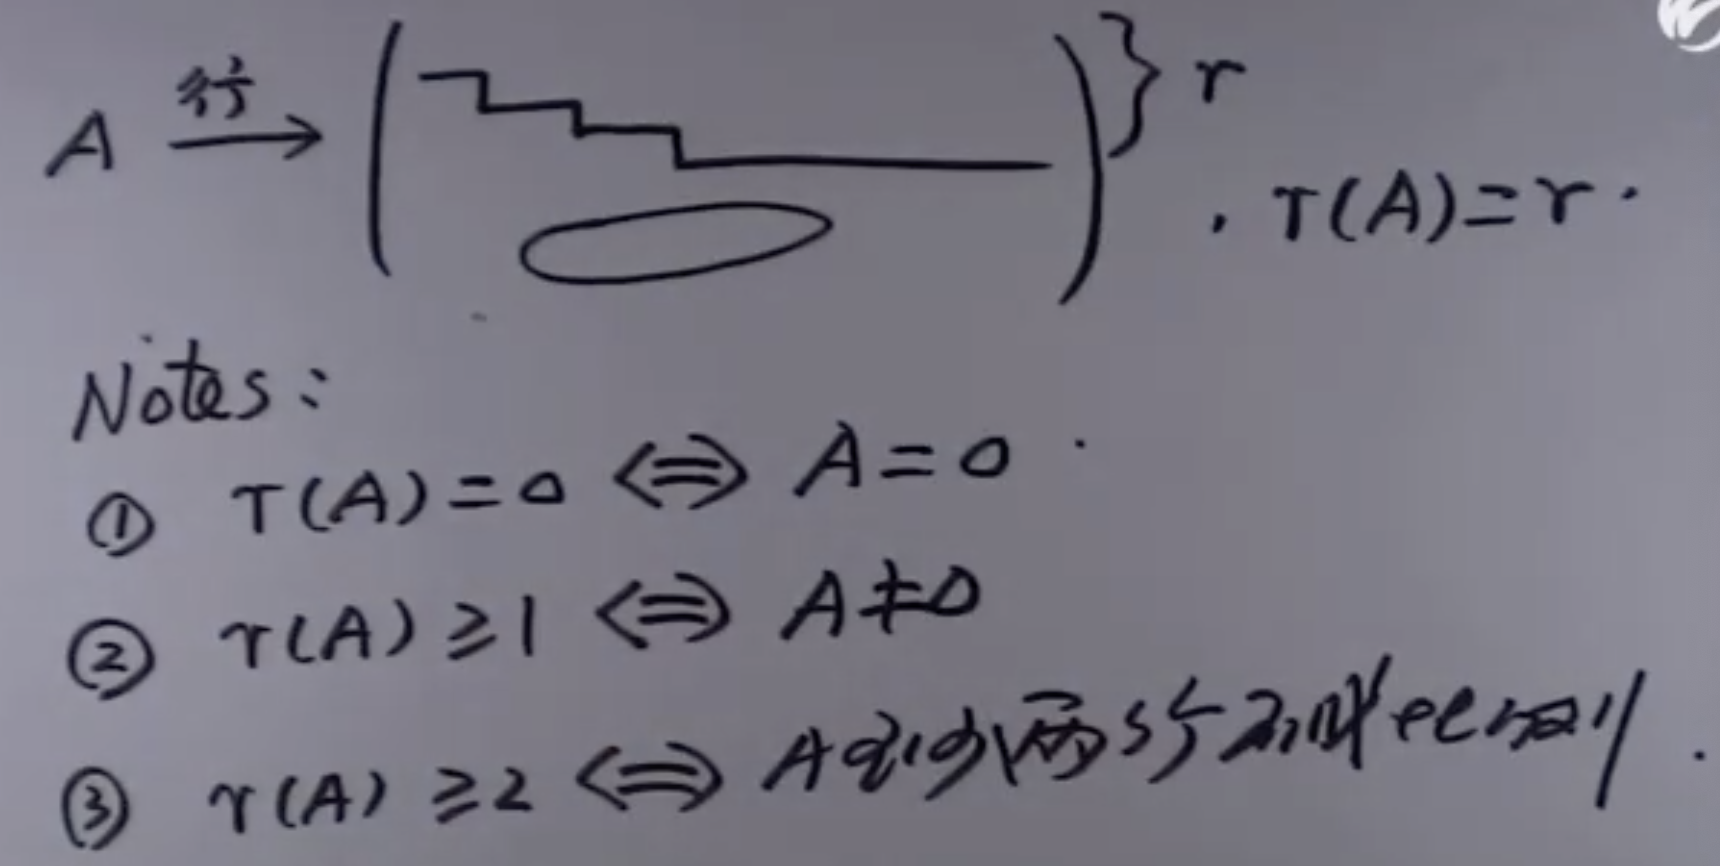 A 行→ ( ) } r
, r(A)=r.
Notes:
① r(A)=0 ⇔ A=0.
② r(A)≥1 ⇔ A≠0
③ r(A)≥2 ⇔ A至少两行不成比例.